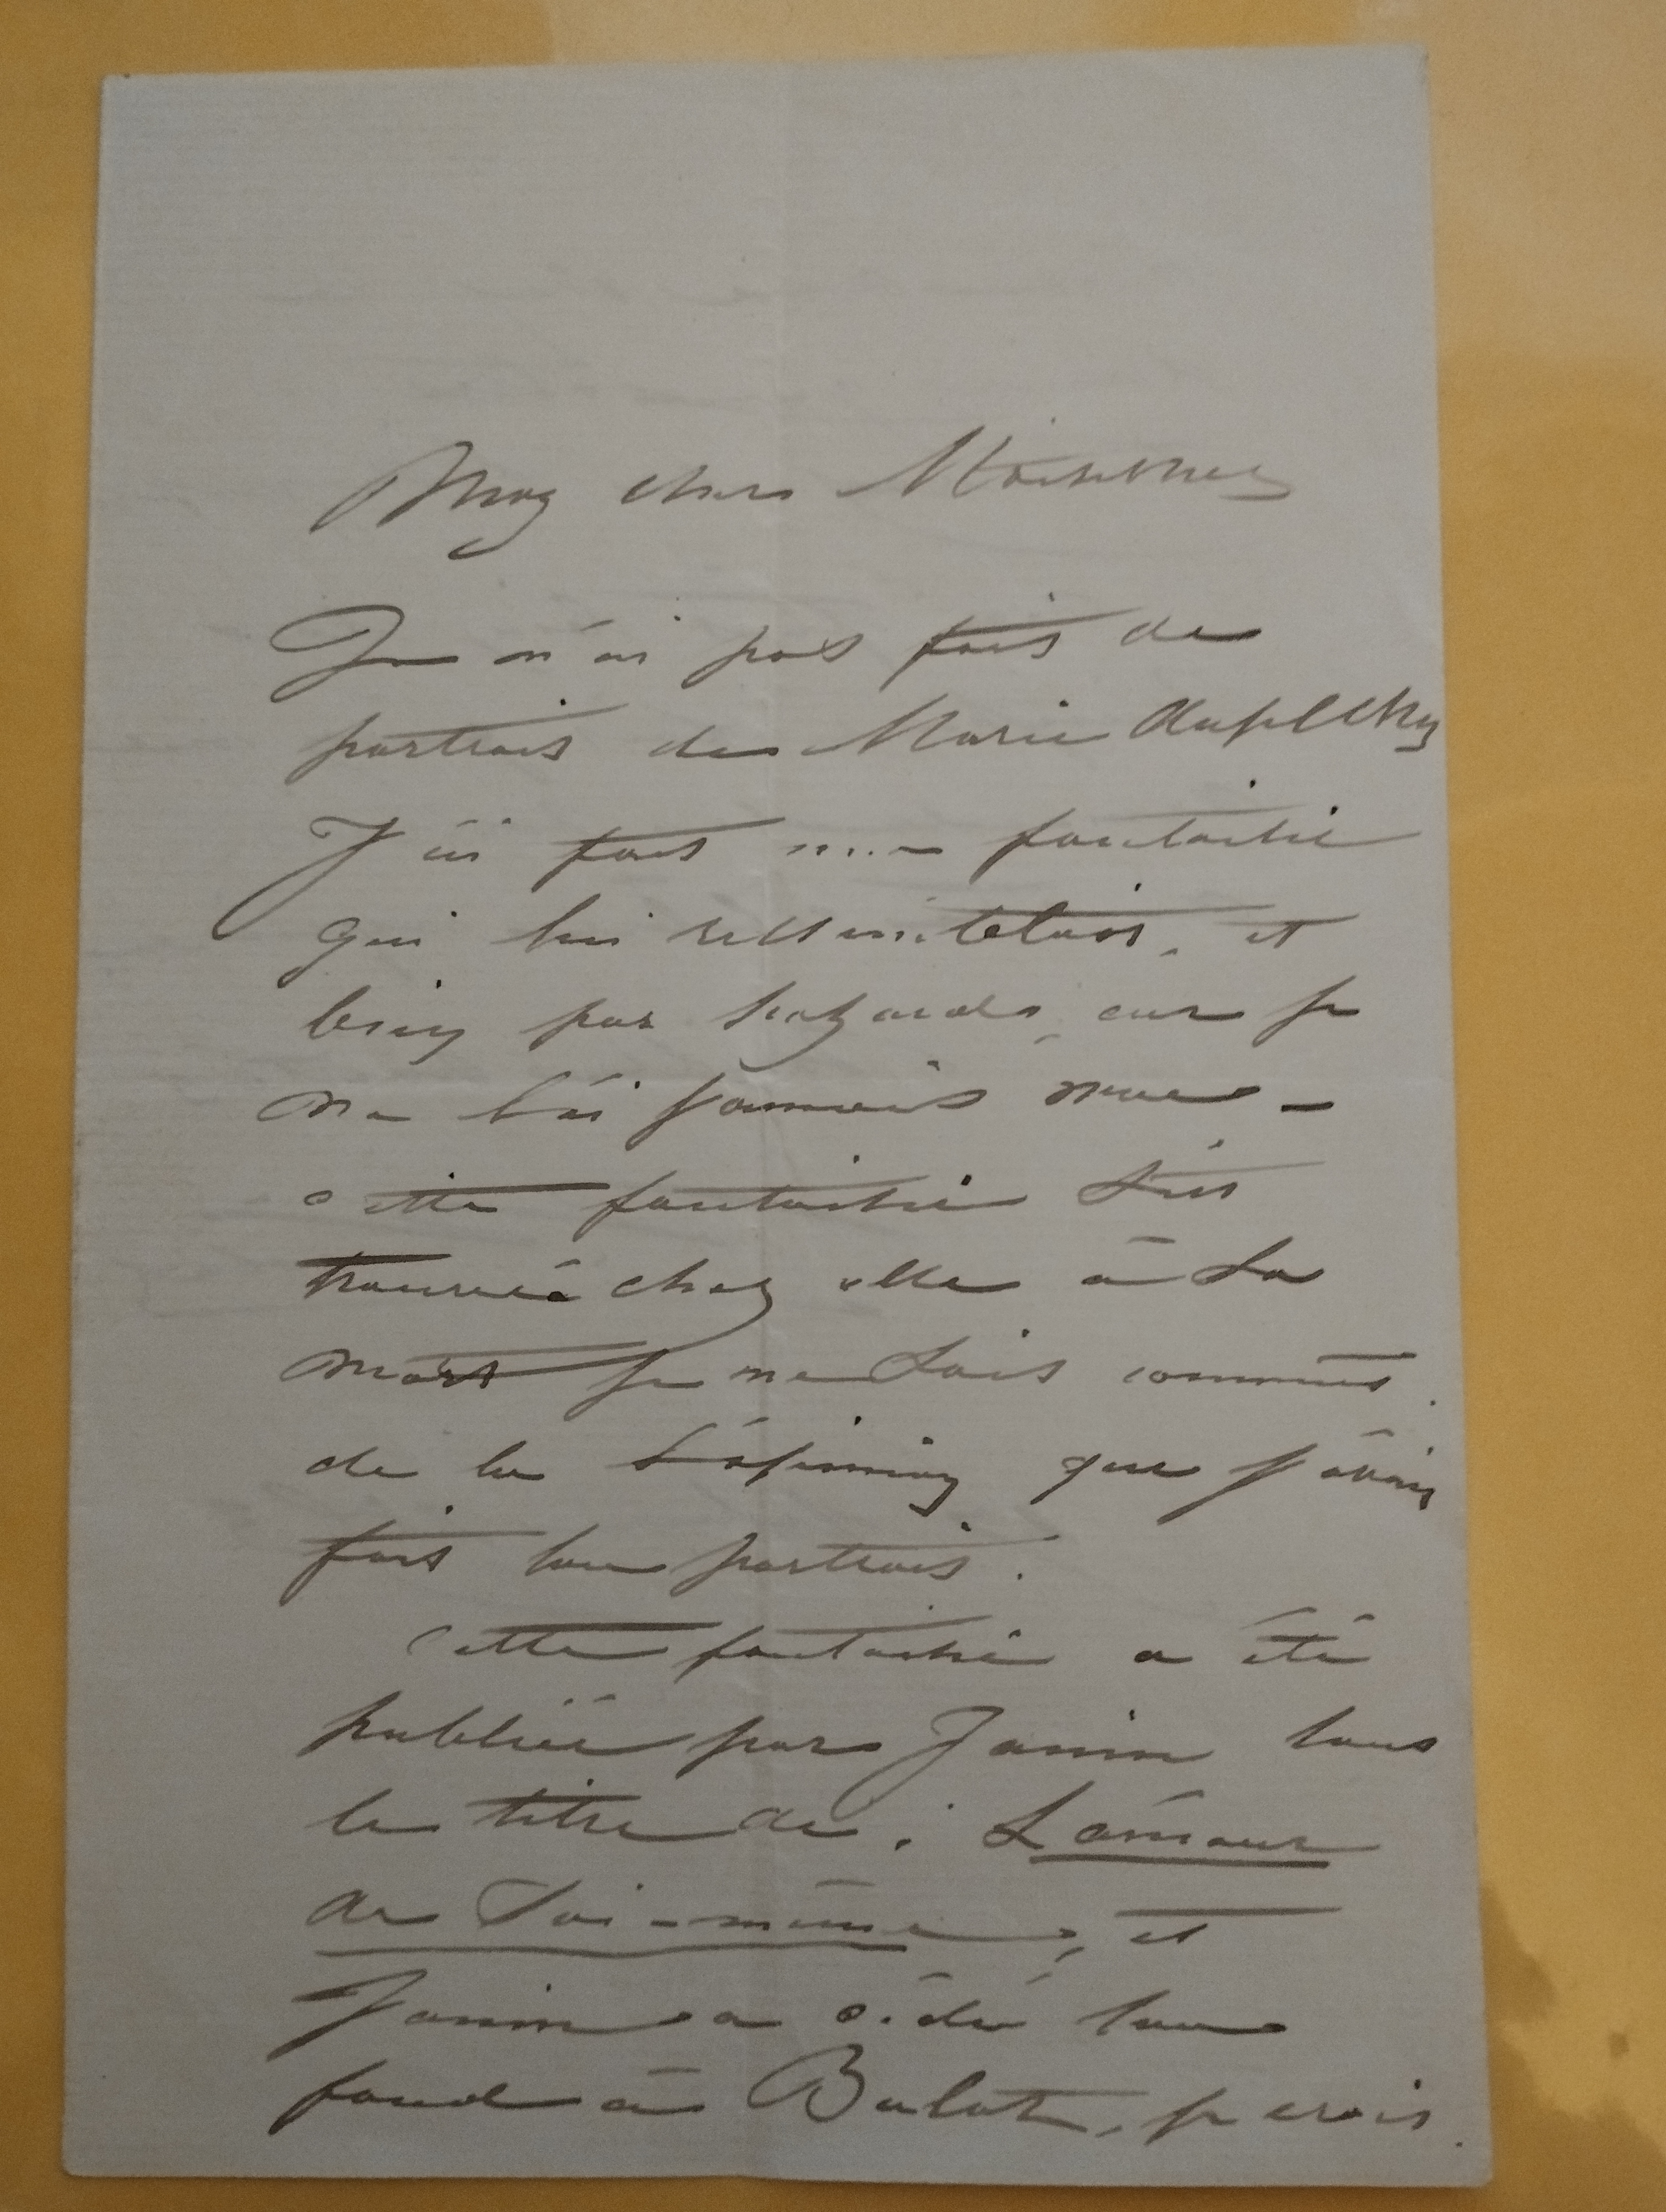 Mon cher
Je n'ai pas fait de
portrait de Marie Duplessy
J'ai fait une fantaisie
qui lui ressemblait, et
bien par hazard, car je
ne l'ai jamais vue –
cette fantaisie s'est
trouvée chez elle à sa
mort je ne sais comment.
de là l'opinion que j'avais
fait son portrait.
Cette fantaisie a été
publiée par Janin sous
le titre de : L'amour
de soi-même, et
Janin a cédé son
fond à Bulot, je crois.